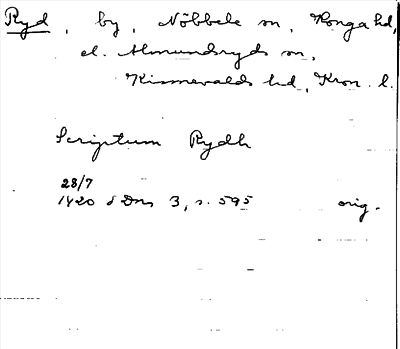 Ryd, by, Nöbbele sn, Konga hd,
el. Almundsryds sn,
Kinnevalds hd, Kron. l.
Scriptum Rydh
28/7
1420 SDns 3, s. 595 orig.